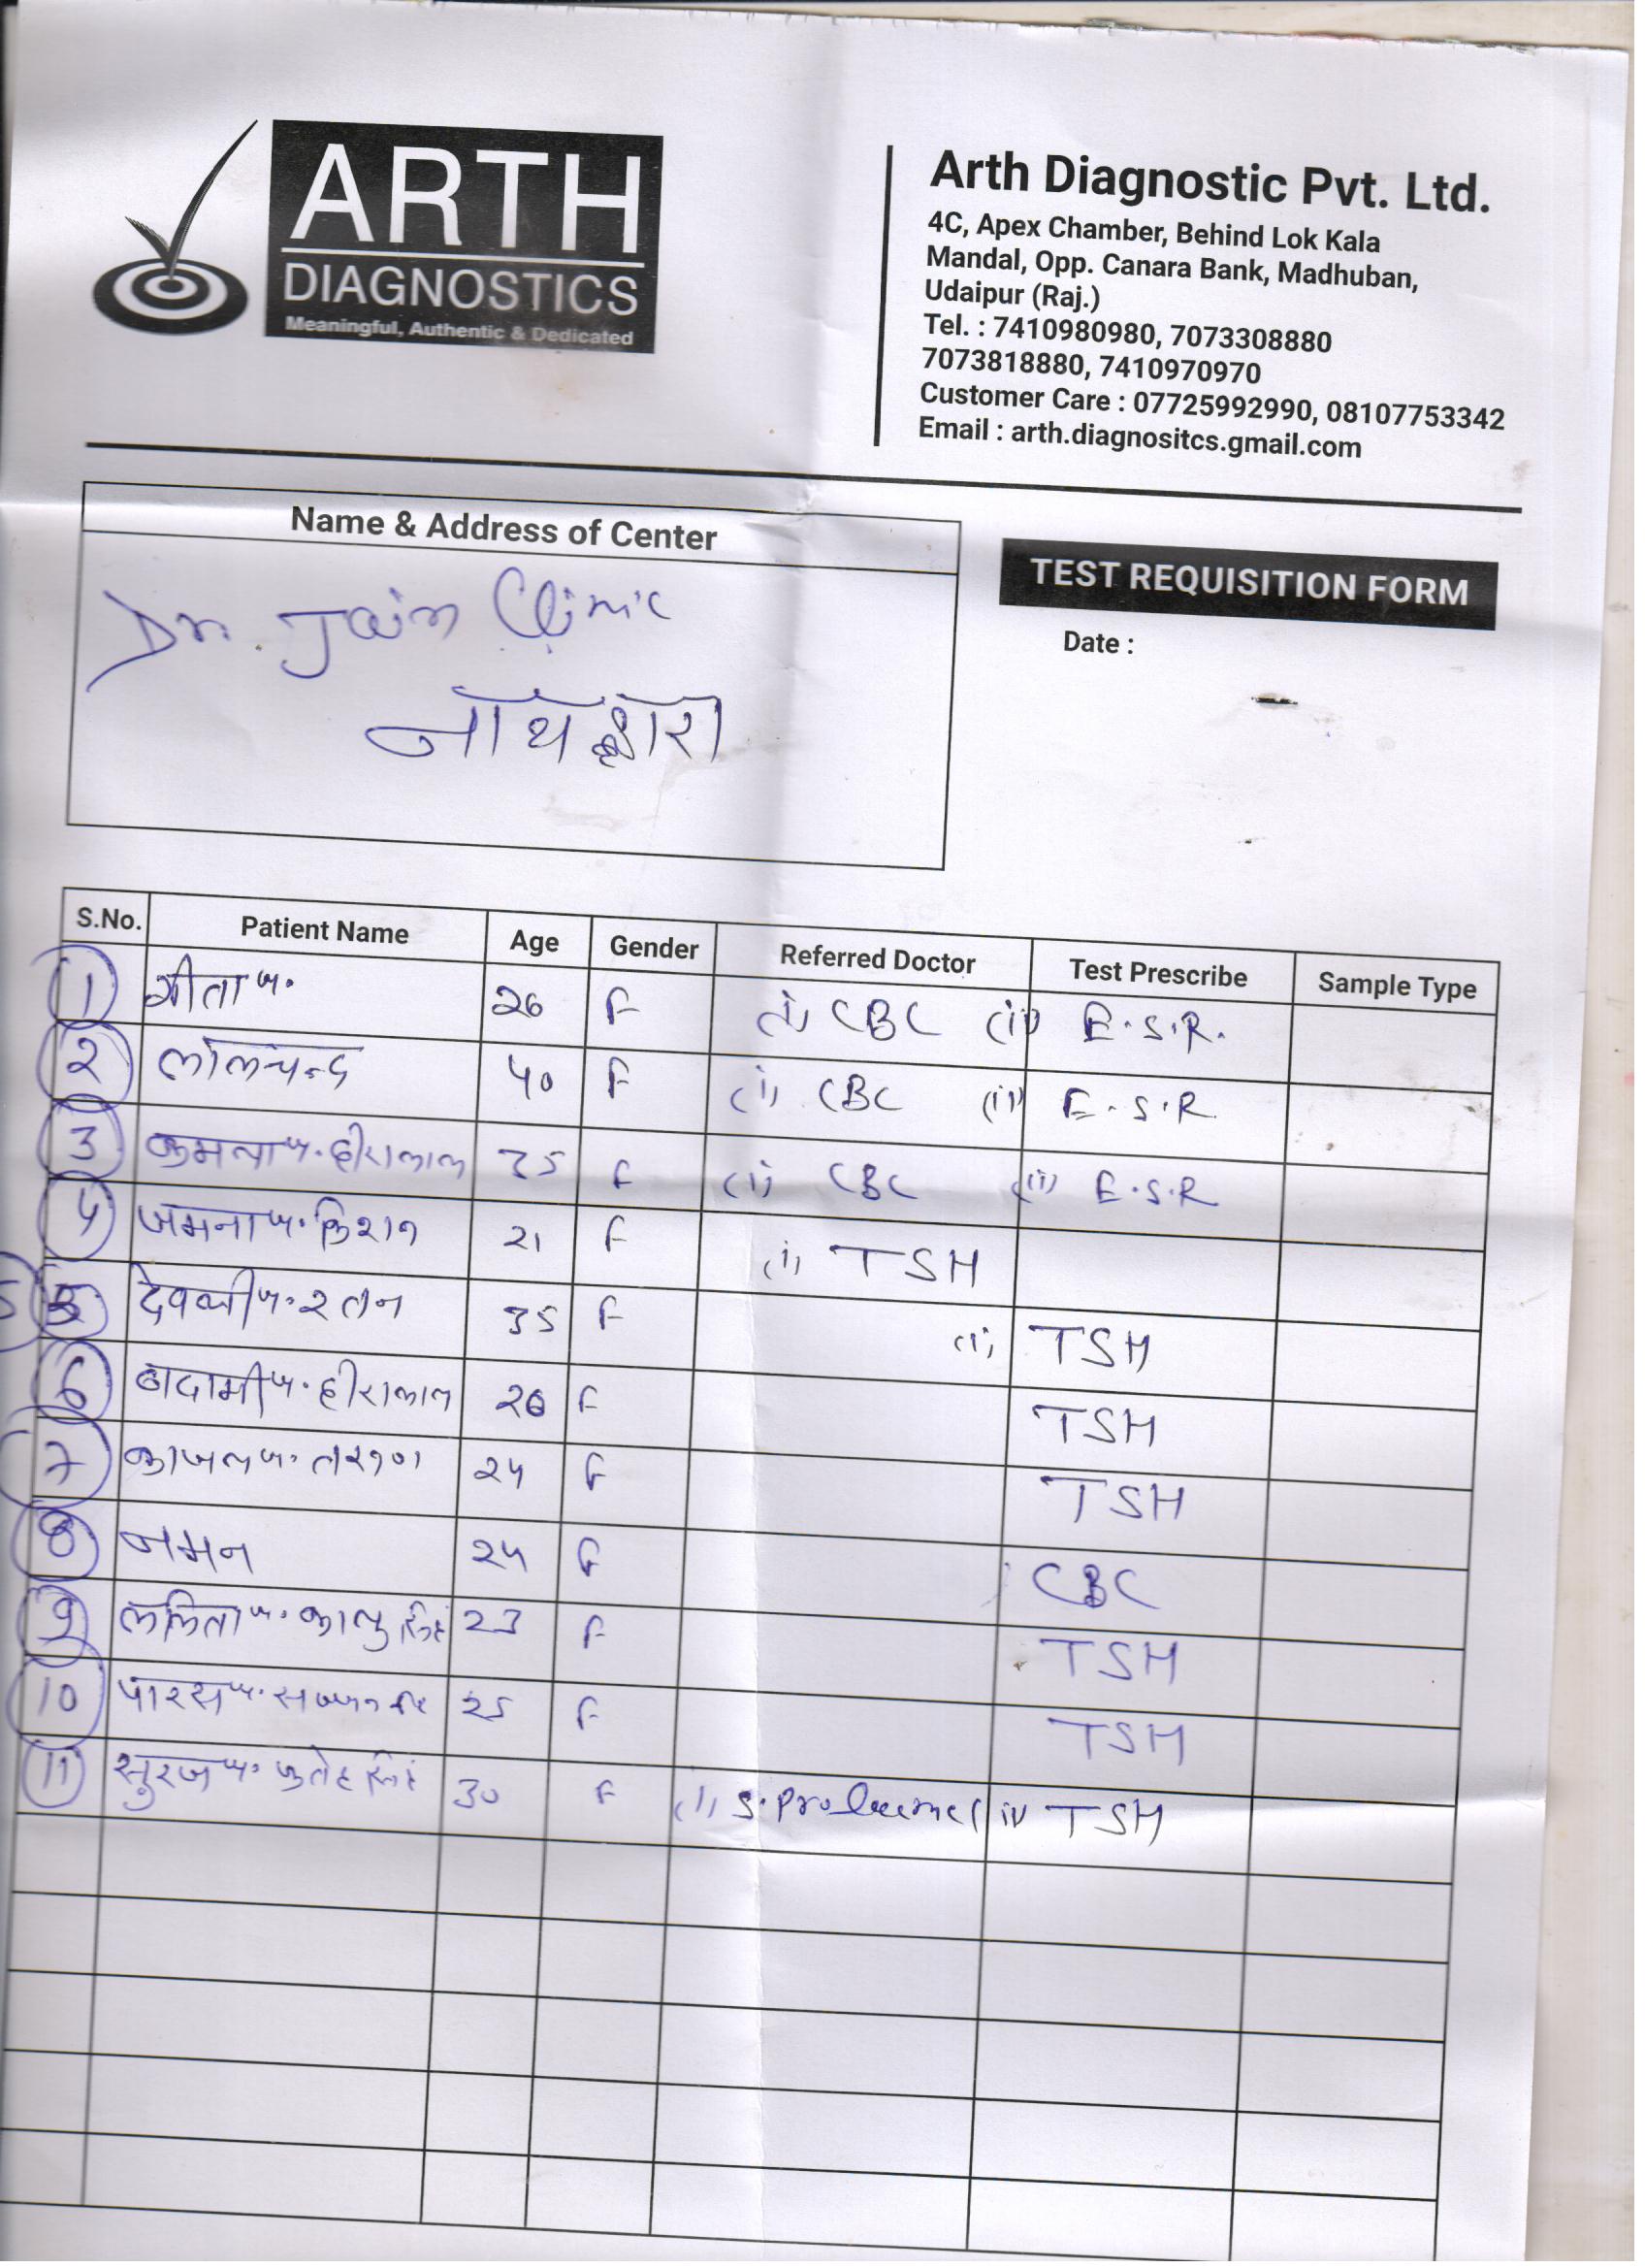 ARTH
DIAGNOSTICS
Meaningful, Authentic & Dedicated
Arth Diagnostic Pvt. Ltd.
4C, Apex Chamber, Behind Lok Kala
Mandal, Opp. Canara Bank, Madhuban,
Udaipur (Raj.)
Tel. : 7410980980, 7073308880
7073818880, 7410970970
Customer Care : 07725992990, 08107753342
Email : arth.diagnositcs.gmail.com
Name & Address of Center
Dr. Jain Clinic
नाथद्वारा
TEST REQUISITION FORM
Date :
S.No. Patient Name Age Gender Referred Doctor Test Prescribe Sample Type
1 गीता प. 26 F (i) CBC (ii) E.S.R.
2 लालचन्द 40 F (i) CBC (ii) E.S.R
3 कमला प. हीरालाल 35 F (i) CBC (ii) E.S.R
4 जमना प. किशन 21 F (i) TSH
5 प. रतन 35 F (i) TSH
6 बादामी प. हीरालाल 26 F TSH
7 काजल प. 24 F TSH
8 जमन 24 F CBC
9 ललिता प. कालु सिंह 23 F TSH
10 पारस प. सज्जन 25 F TSH
11 सुरज प. फतेह सिंह 30 F (i) S. (ii) TSH